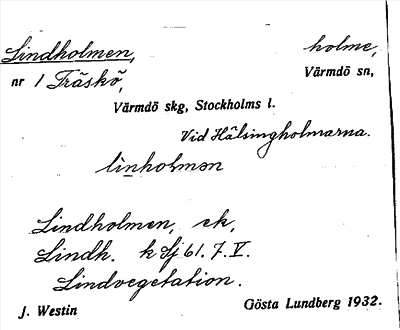 Lindholmen, holme,
nr 1 Träskö, Värmdö sn,
Värmdö skg, Stockholms l.
Vid Hälsingholmarna.
lìnhòlmən
Lindholmen, ek,
Lindh. k Sj 61. 7. V.
Lindvegetation.
J. Westin Gösta Lundberg 1932.